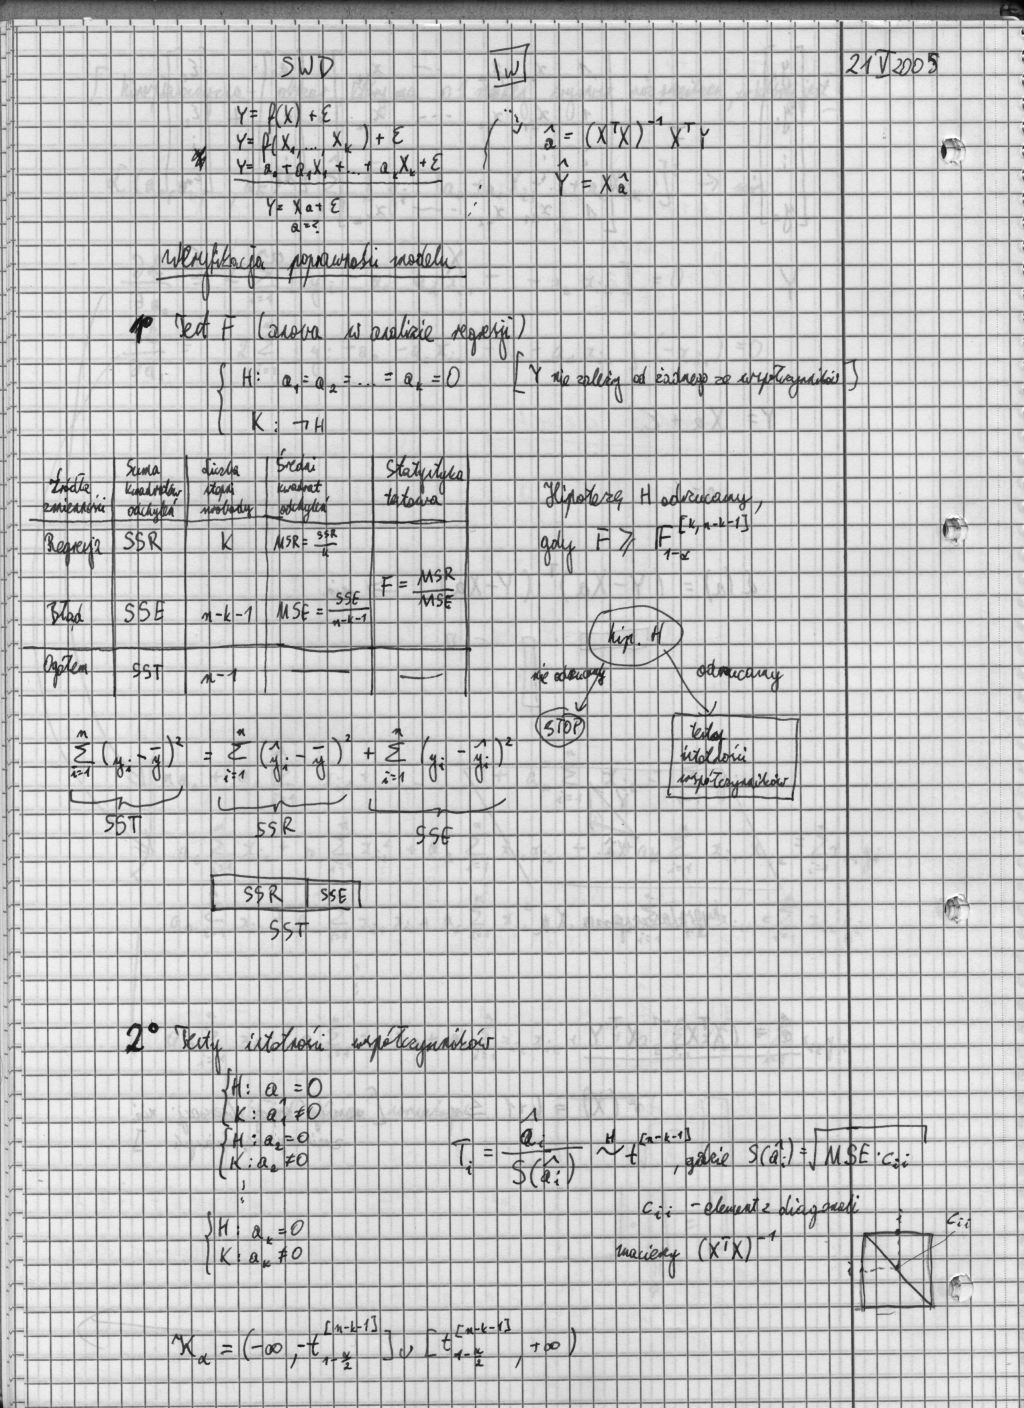 SWD
1W
21 V 2005
Y = f(X) + ε
Y = f(X₁, ..., Xₖ) + ε
Y = a₀ + a₁X₁ + ... + aₖXₖ + ε
Y = Xa + ε
a = ?
â = (XᵀX)⁻¹ XᵀY
Ŷ = Xâ
Weryfikacja poprawności modelu
1° Test F (anova w analizie regresji)
H: a₁ = a₂ = ... = aₖ = 0 [Y nie zależy od żadnego ze współczynników]
K: ¬H
Źródła zmienności | Suma kwadratów odchyleń | Liczba stopni swobody | Średni kwadrat odchyleń | Statystyka testowa
Regresja | SSR | k | MSR = SSR/k
F = MSR/MSE
Błąd | SSE | n-k-1 | MSE = SSE/n-k-1
Ogółem | SST | n-1 | — | —
Hipotezę H odrzucamy,
gdy F ⩾ F₁₋α^[k, n-k-1]
hip. H
nie odrzucamy
odrzucamy
STOP
testy
istotności
współczynników
∑ᵢ₌₁ⁿ (yᵢ - ȳ)² = ∑ᵢ₌₁ⁿ (ŷᵢ - ȳ)² + ∑ᵢ₌₁ⁿ (yᵢ - ŷᵢ)²
SST SSR SSE
SSR SSE
SST
2° Testy istotności współczynników
H: a₁ = 0
K: a₁ ≠ 0
H: a₂ = 0
K: a₂ ≠ 0
⋮
H: aₖ = 0
K: aₖ ≠ 0
Tᵢ = âᵢ / S(âᵢ) ~ᴴ t^[n-k-1], gdzie S(âᵢ) = √(MSE · cᵢᵢ)
cᵢᵢ - element z diagonali
macierzy (XᵀX)⁻¹
i
i
cᵢᵢ
Kα = (-∞, -t₁₋α/₂^[n-k-1]] ∪ [t₁₋α/₂^[n-k-1], +∞)